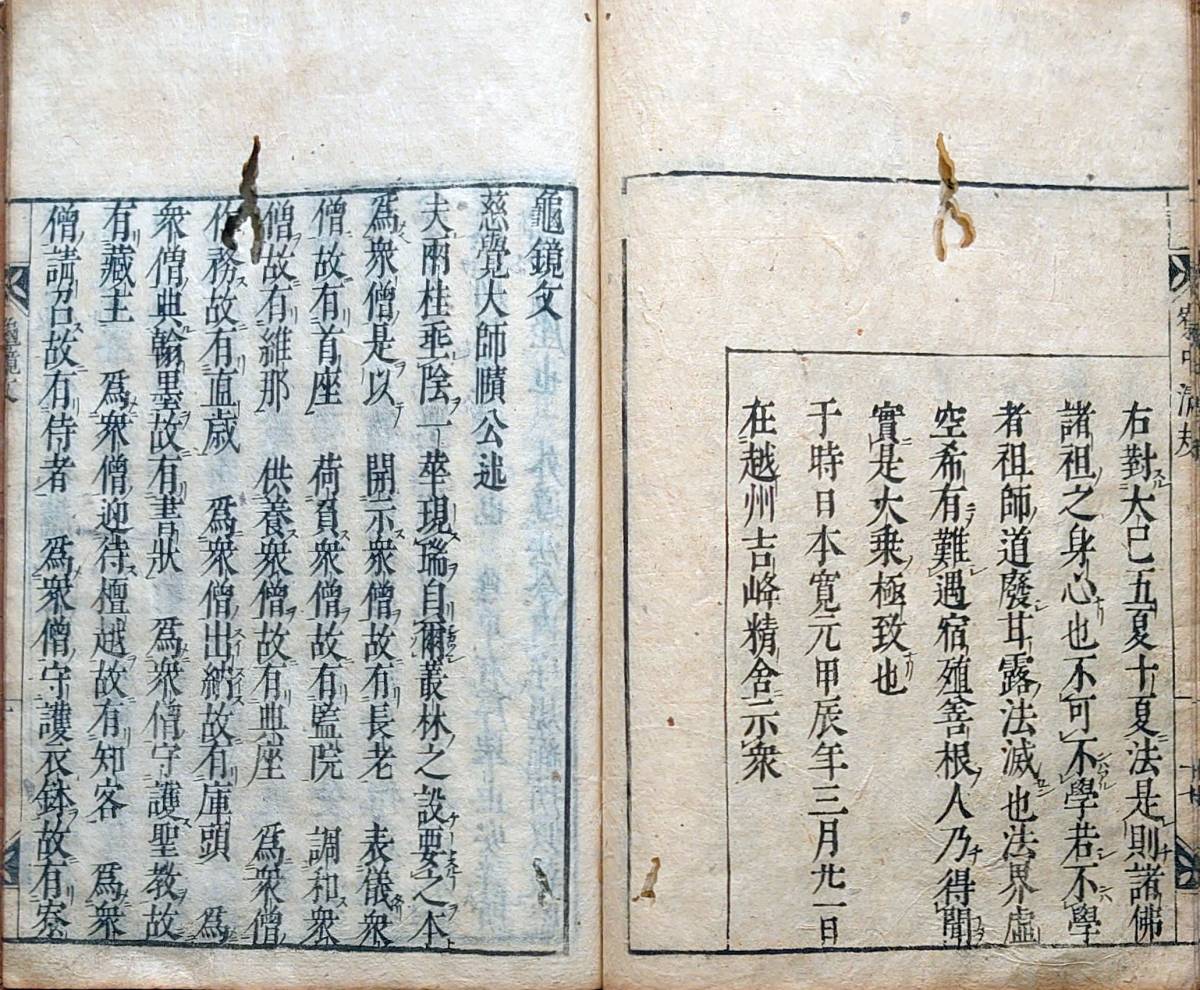 右對大己五夏十夏法是則諸佛
諸祖之身心也不可不學若不學
者祖師道廢甘露法滅也法界虛
空希有難遇宿殖善根人乃得聞
實是大乘極致也
于時日本寬元甲辰年三月廿一日
在越州吉峰精舍示衆
龜鏡文
慈覺大師賾公述
夫兩桂垂陰一華現瑞自爾叢林之設要之本
爲衆僧是以 開示衆僧故有長老 表儀衆
僧故有首座 荷負衆僧故有監院 調和衆
僧故有維那 供養衆僧故有典座 爲衆僧
作務故有直歲 爲衆僧出納故有庫頭 爲
衆僧典翰墨故有書狀 爲衆僧守護聖教故
有藏主 爲衆僧迎待檀越故有知客 爲衆
僧請召故有侍者 爲衆僧守護衣鉢故有寮